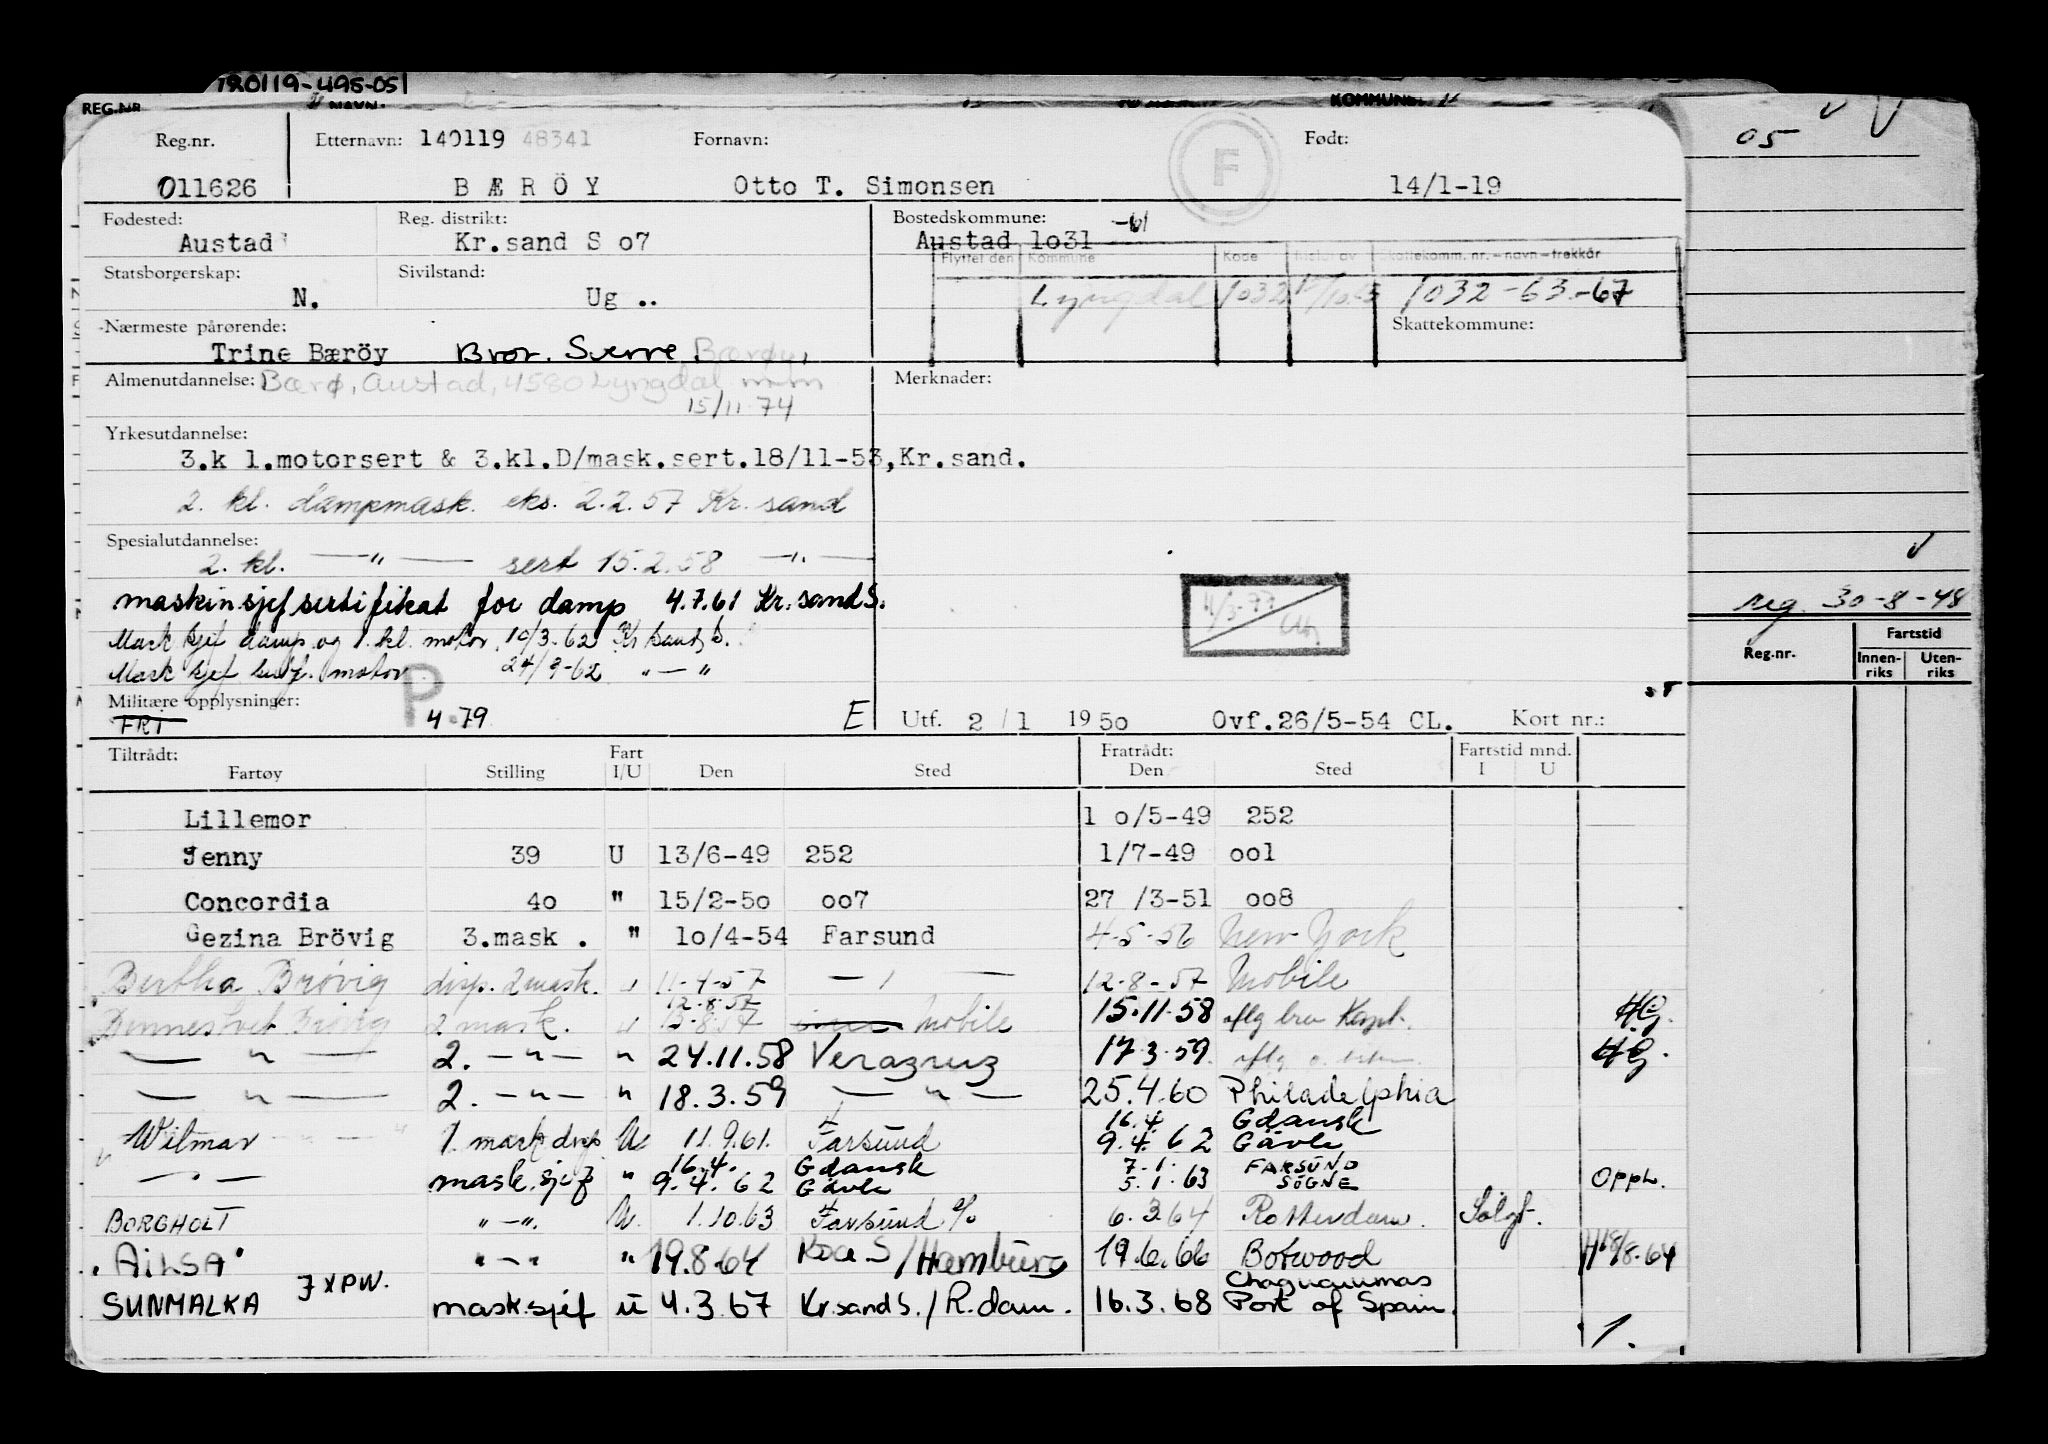 REG.NR NAVN. KOMMUNE
Reg.nr. Etternavn: 140119 48341 Fornavn: F Født:
011626 BÆRÖY Otto T. Simonsen 14/1-19
Fødested: Reg. distrikt: Bostedskommune: -61
Austad Kr.sand S o7 Austad 1o31
Flyttet den Kommune Kode Skattekomm. nr.-navn-trekkår
Statsborgerskap: Sivilstand:
N. Ug .. Lyngdal 1032 1032-63-67
Nærmeste pårørende: Skattekommune:
Trine Bæröy Bror. Sverre Bærøy,
Almenutdannelse: Bærø, Austad, 4580 Lyngdal Merknader:
15/11.74
Yrkesutdannelse:
3.k l.motorsert & 3.kl.D/mask.sert.18/11-53,Kr.sand.
2. kl. dampmask. eks. 2.2.57 Kr. sand
Spesialutdannelse:
2. kl. —"— sert 15.2.58 —"—
maskinsjefsertifikat for damp 4.7.61 Kr.sandS.
Mask sjef damp og 1. kl. motor 10/3-62 Kr sand S.
Mask sjef sertf. motor 24/9-62 "—"
4/3-77
Militære opplysninger:
FRT P 4.79 E Utf. 2/1 1950 Ovf.26/5-54 CL. Kort nr.:
Tiltrådt: Fart Fratrådt: Fartstid mnd.
Fartøy Stilling I/U Den Sted Den Sted I U
Lillemor 1 o/5-49 252
Jenny 39 U 13/6-49 252 1/7-49 oo1
Concordia 4o " 15/2-5o oo7 27 /3-51 oo8
Gezina Brövig 3.mask . " 1o/4-54 Farsund 4-5-56 New York
Bertha Brövig disp. 2 mask. " 11-4-57 — " — 12-8-57 Mobile
12.8.57
Bennestvet Brövig 2 mask. " 13-8-57 Mobile 15.11.58 HG.
— " — 2. —"— " 24.11.58 Veracruz 17.3.59. HG.
— " — 2. —"— " 18.3.59 — " — 25.4.60 Philadelphia
16.4. Gdansk
Wilmar 1. mask disp U 11.9.61. Farsund 9.4.62 Gävle
16.4. Gdansk 7.1. FARSUND
— " — mask.sjef " 9.4.62 Gävle 5.1.63 SÖGNE Opph.
BORGHOLT "—". U. 1.10.63 Farsund % 6.3.64 Rotterdam. Solgt.
"AILSA" "—" " 19.8.64 /Hamburg 19.6.66 Botwood 18/8-64
7 X PW. Chaguaramas
SUNMALKA mask.sjef u 4.3.67 Kr.sand S./R.dam. 16.3.68 Port of Spain.
1.
05
reg. 30-8-48
Reg.nr. Fartstid
Innen-riks Uten-riks